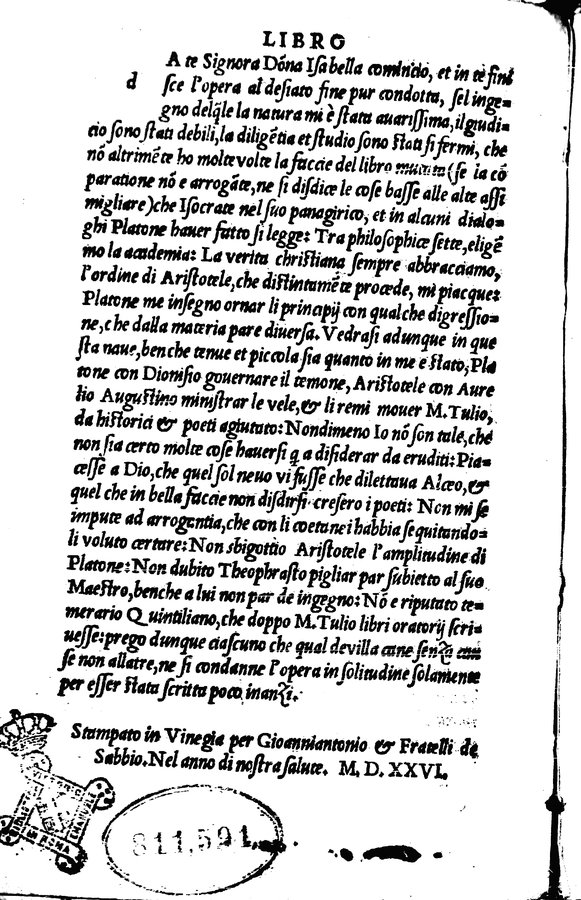 LIBRO
A te Signora Dõna Isabella comincio, et in te fini
d sce l'opera al desiato fine pur condotta, sel inge=
gno delq̃le la natura mi è stata auarissima, il giudi=
cio sono stati debili, la diligẽtia et studio sono stati si fermi, che
nõ altrimẽte ho molte volte la faccie del libro mutata (se la cõ
paratione nõ e arrogãte, ne si disdice le cose basse alle alte assi
migliare) che Isocrate nel suo panagirico, et in alcuni dialo=
ghi Platone hauer fatto si legge: Tra philosophice sette, eligẽ
mo la academia: La verita christiana sempre abbracciamo,
l'ordine di Aristotele, che distintamẽte procede, mi piacque:
Platone me insegno ornar li principij con qualche digressio=
ne, che dalla materia pare diuersa. Vedrasi adunque in que
sta naue, benche tenue et piccola sia quanto in me e stato, Pla
tone con Dionisio gouernare il temone, Aristotele con Aure
lio Augustino ministrar le vele, & li remi mouer M. Tulio,
da historici & poeti agiutato: Nondimeno Io nõ son tale, che
non sia certo molte cose hauersi q̃ a disiderar da eruditi: Pia=
cesse a Dio, che quel sol neuo vi fusse che dilettaua Alceo, &
quel che in bella faccie non disdirsi cresero i poeti: Non mi se
impute ad arrogantia, che con li coetanei habbia sequitando=
li voluto certare: Non sbigottio Aristotele l'amplitudine di
Platone: Non dubito Theophrasto pigliar par subietto al suo
Maestro, benche a lui non par de ingegno: Nõ e riputato te=
merario Quintiliano, che doppo M. Tulio libri oratorij scri=
uesse: prego dunque ciascuno che qual de villa cane senza
se non allatre, ne si condanne l'opera in solitudine solamente
per esser stata scritta poco inanzi.
Stampato in Vinegia per Gioanniantonio & Fratelli de
Sabbio. Nel anno di nostra salute. M. D. XXVI.
811,591